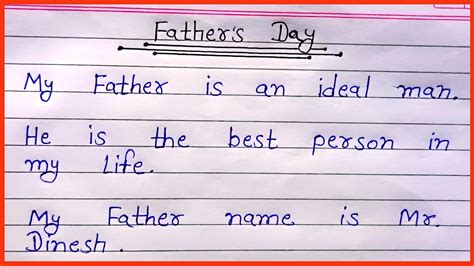 Father's Day
My Father is an ideal man.
He is the best person in
my Life.
My Father name is Mr.
Dinesh.